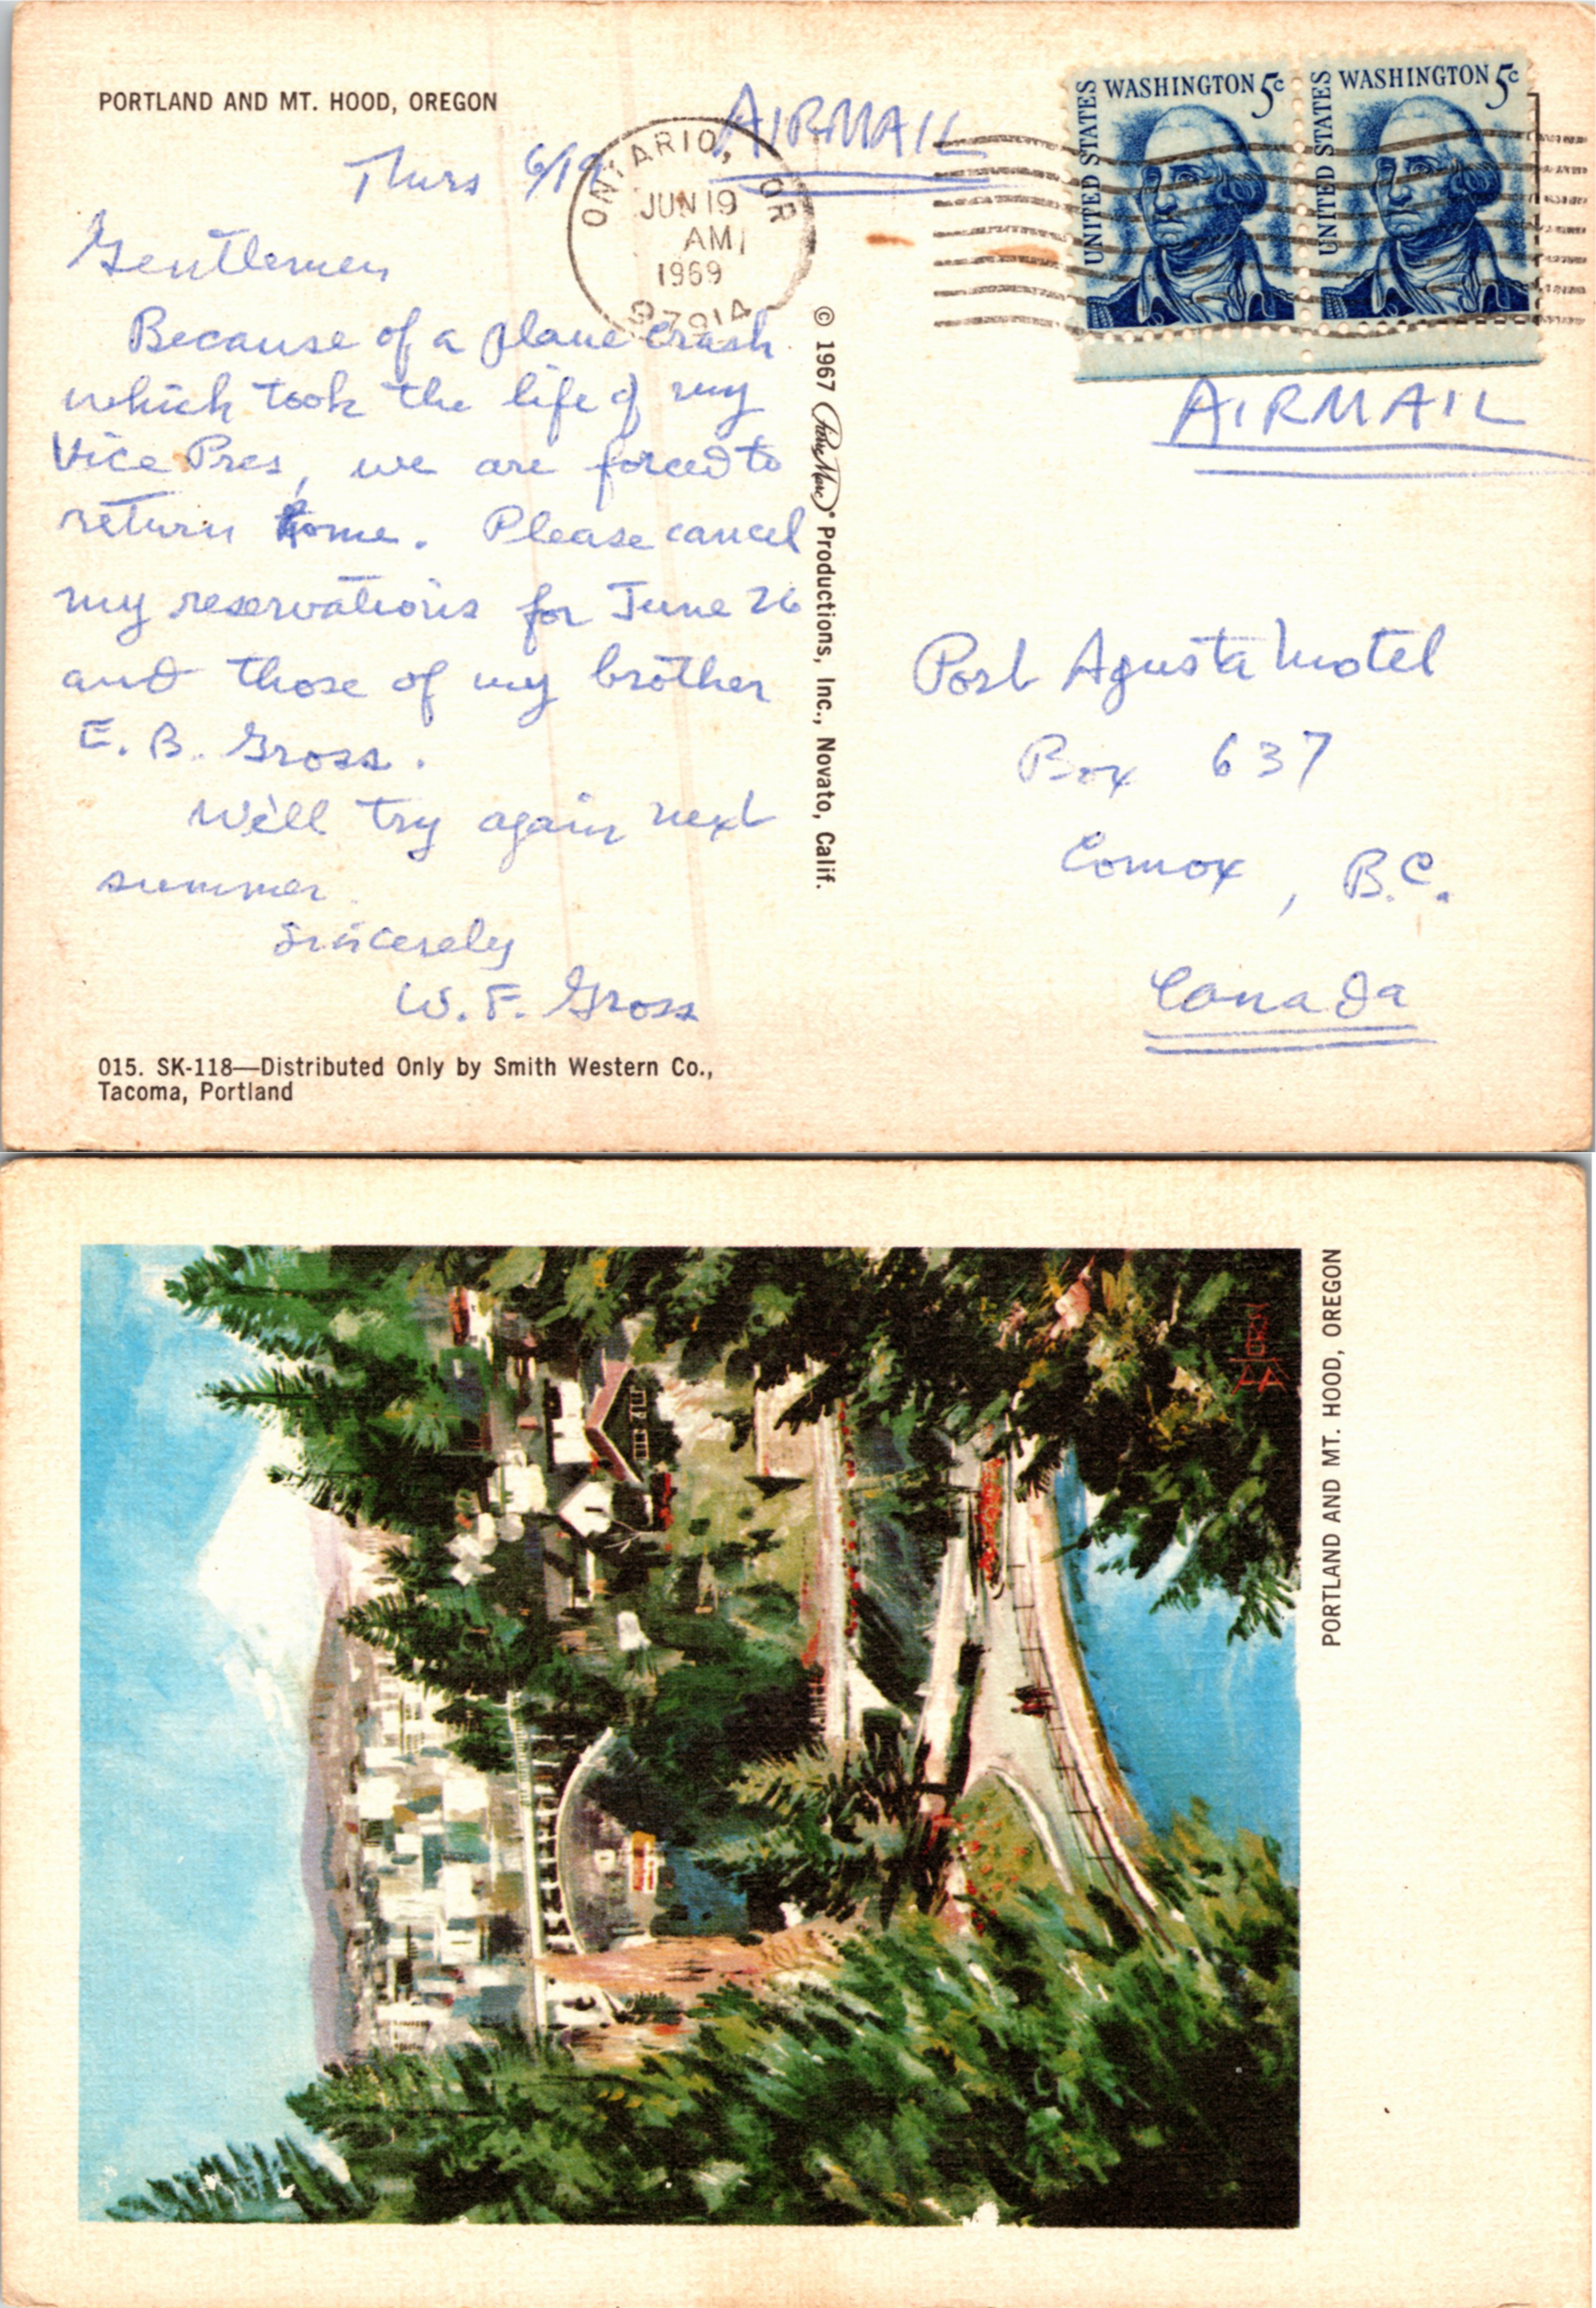 PORTLAND AND MT. HOOD, OREGON
AIRMAIL
Thurs 6/19
ONTARIO, OR
JUN 19
AM
1969
97914
UNITED STATES
WASHINGTON 5c
UNITED STATES
WASHINGTON 5c
Gentlemen
Because of a plane crash
which took the life of my
Vice Pres, we are forced to
return home. Please cancel
my reservations for June 26
and those of my brother
E. B. Gross.
We'll try again next
summer.
Sincerely
W. F. Gross
015. SK-118—Distributed Only by Smith Western Co.,
Tacoma, Portland
© 1967 Productions, Inc., Novato, Calif.
AIRMAIL
Port Agusta Motel
Box 637
Comox, B.C.
Canada
PORTLAND AND MT. HOOD, OREGON